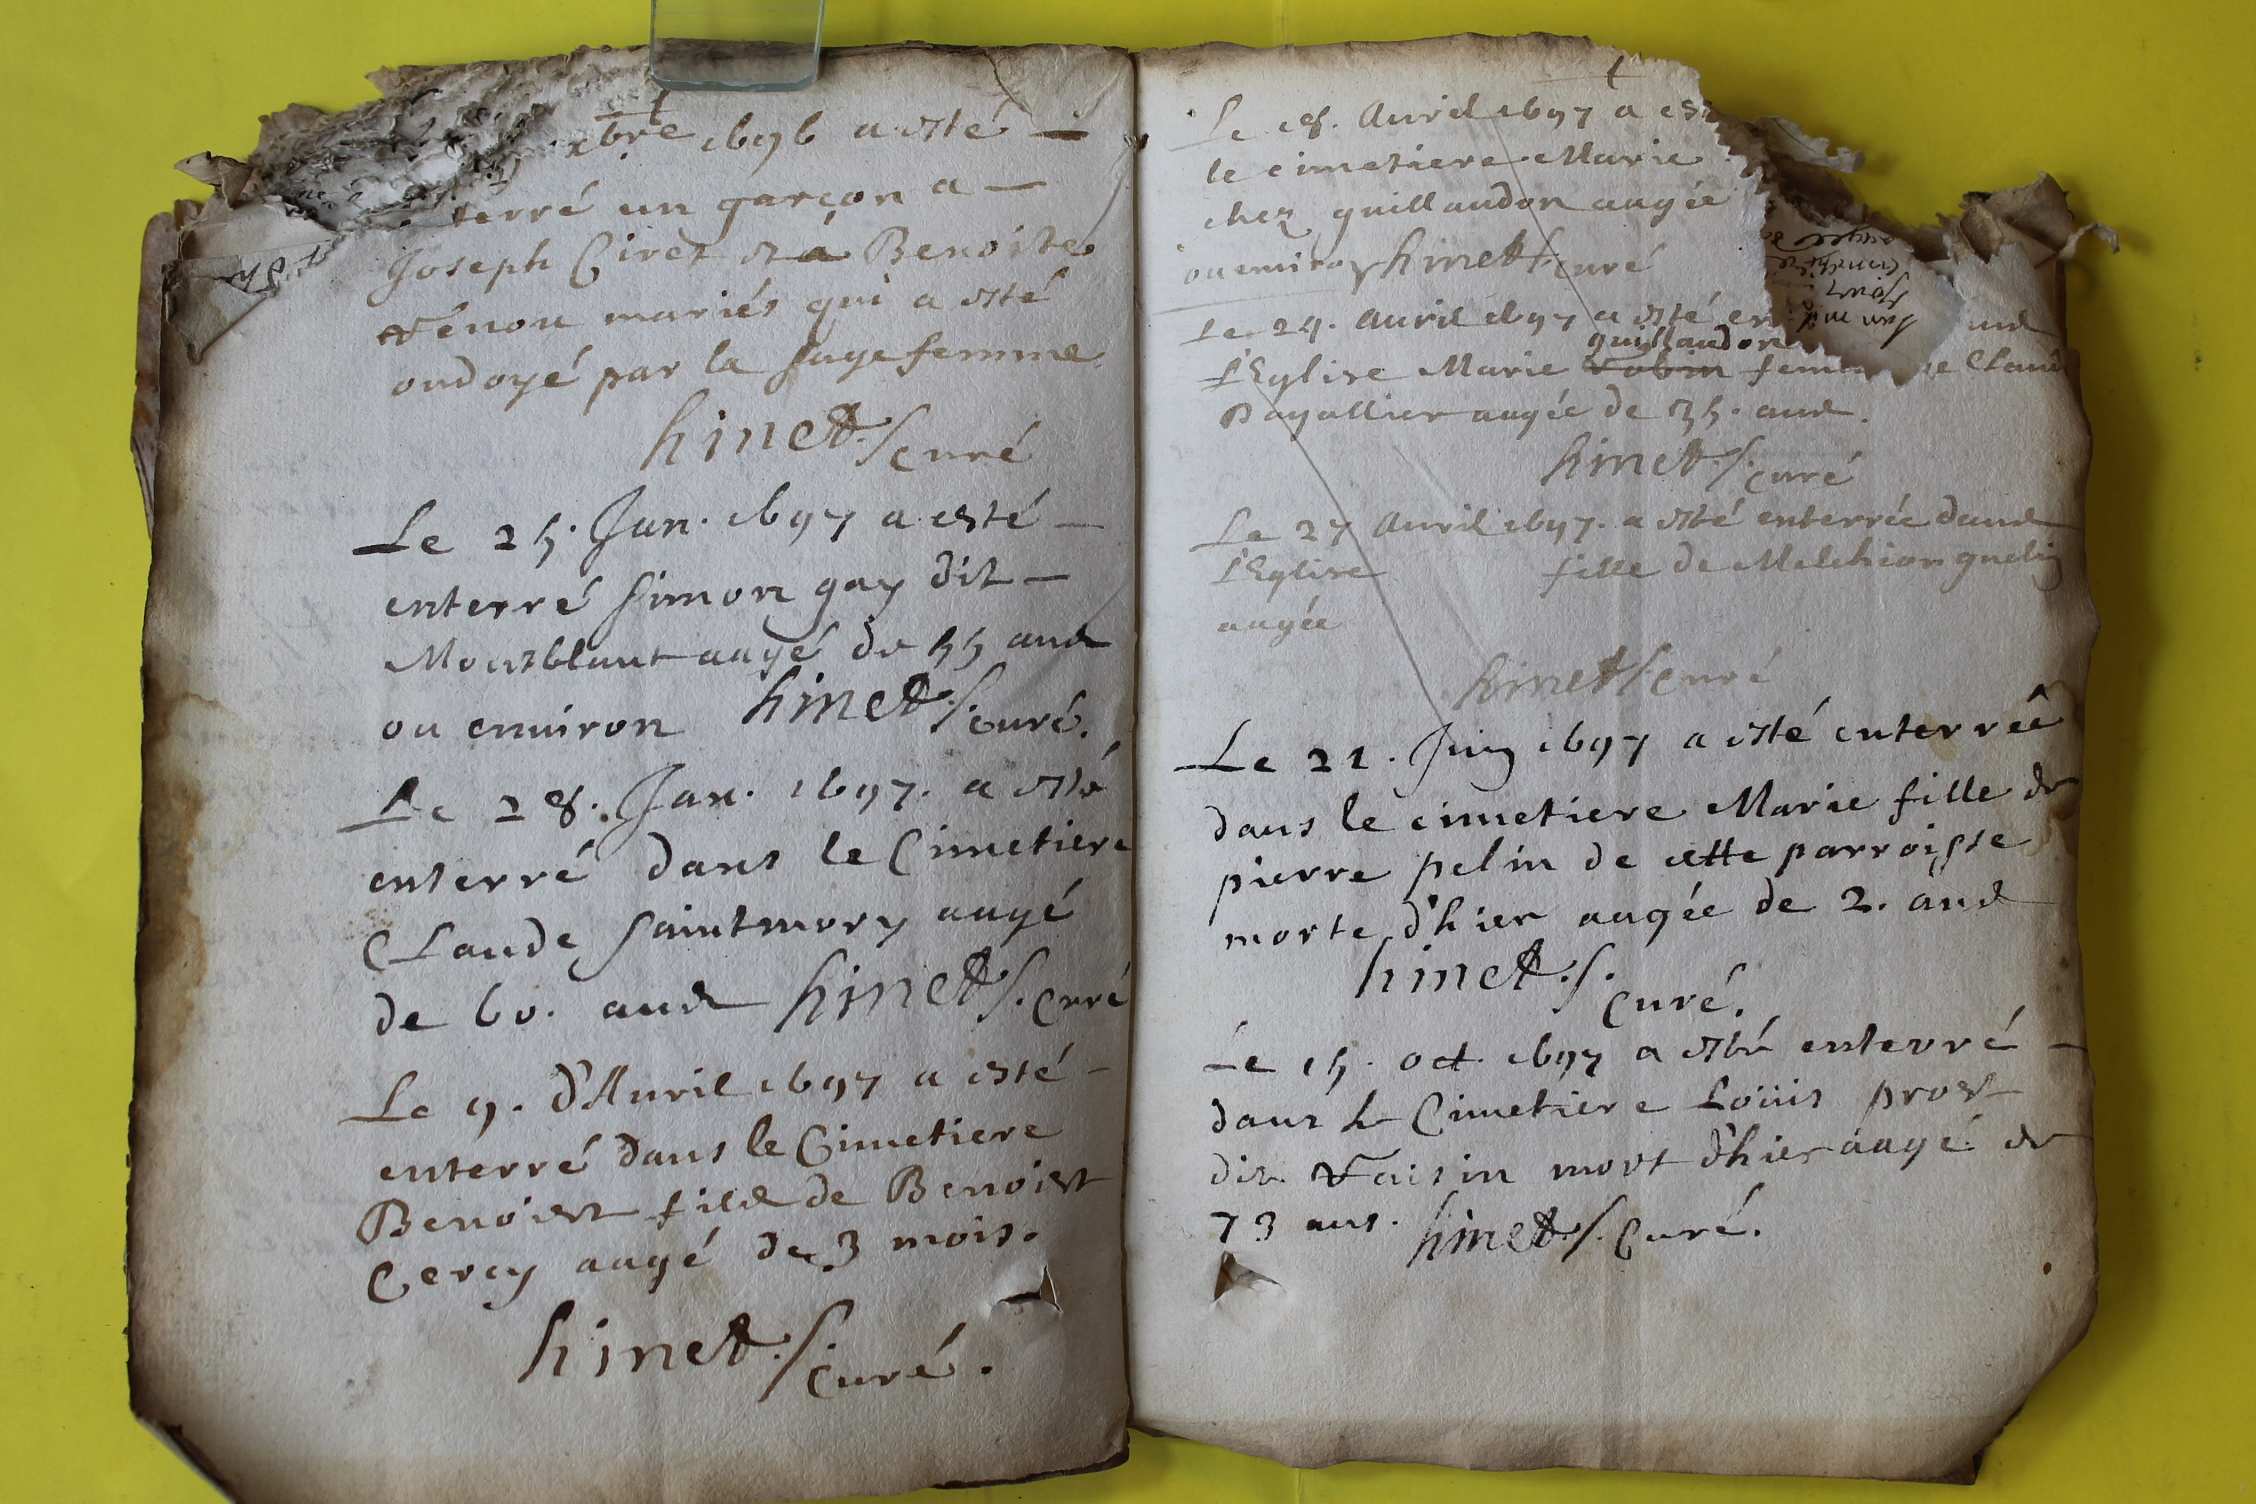 bre 1696 a esté
terré un garçon a
Joseph Ciret et a Benoiste
Vénon mariés qui a esté
ondoyé par la sage femme
hinet curé
Le 25. Jan. 1697 a esté
enterré simon gay dit
Montblant aagé de 55 ans
ou environ hinet curé.
Le 28. Jan. 1697. a esté
enterré dans le Cimetiere
Claude saintmory aagé
de 60. ans hinet curé
Le 9. d'Auril 1697 a esté
enterré dans le Cimetiere
Benoist fils de Benoist
Cercy aagé de 3 mois.
hinet curé.
Le 18. Auril 1697 a est
le cimetiere Marie
chez guillaudon aagée
ou enuiron hinet curé
Le 24. auril 1697 a esté en
guillaudon
l'Eglise Marie robin fem Clau
Dagallier aagée de 35. ans.
hinet curé
Le 27 auril 1697. a esté enterrée dans
l'Eglise fille de Melchior guelin
aagée
hinet curé
Le 21. Juin 1697 a esté enterrée
dans le cimetiere Marie fille de
pierre pelin de cette parroisse
morte d'hier aagée de 2. ans
hinet curé.
Le 15. oct. 1697 a esté enterré
dans le Cimetiere Loüis prost
dit Vaisin mort d'hier aagé de
73 ans. hinet curé.